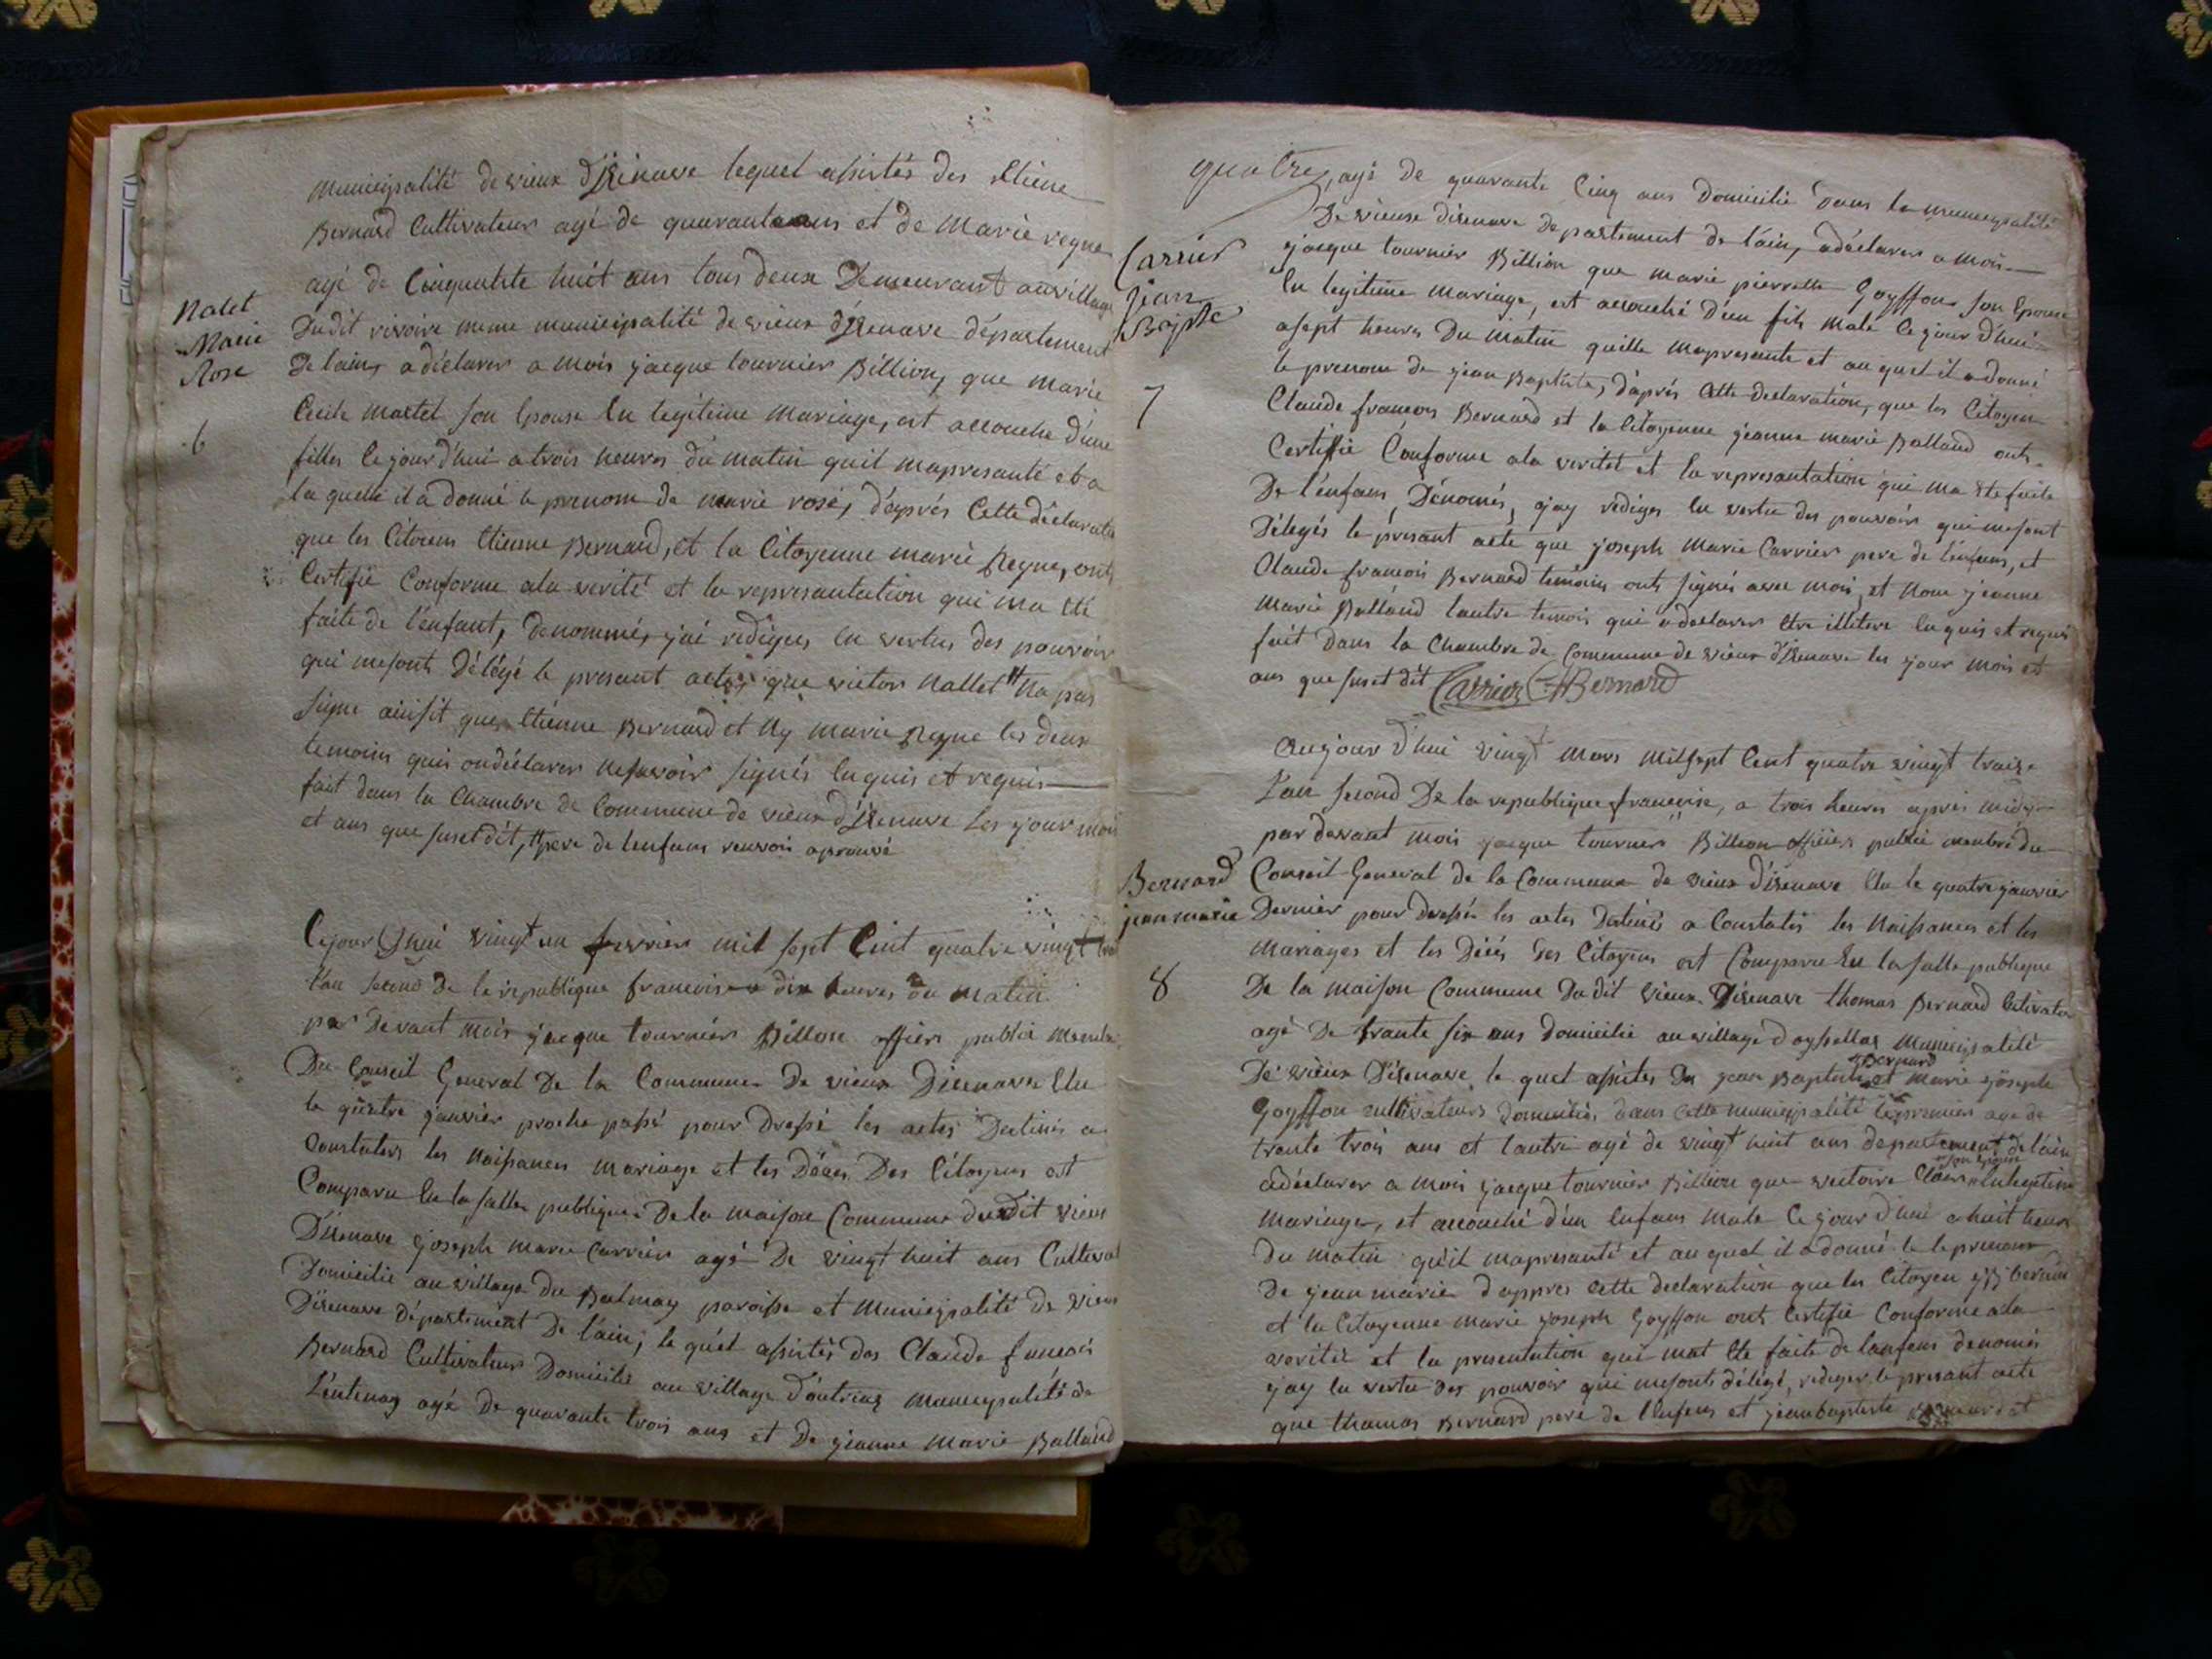 municipalité de vieux d'Izenave lequel assistés des Etiene
Bernard Cultivateur agé de quarante ans et de Marie regne
agé de Cinquante huit ans tous deux Demeurant au village
Nalet
Marie
Rose
6
Dudit rivoire meme municipalité de vieux d'izenave departement
De lain, a déclarer a mois jacque tournier Billion, que marie
Cecile martel son Epouse En legiteime mariage, est accouche d'une
filles Ce jour d'hui a trois heures du matin quil mapresanté et a
la quelle il a donné le prenom de marie rose, d'après Cette déclaration
que les Citoiens Etienne Bernard, et la Citoyenne marie Regne, onts
Certifié Conforme ala verité et la represantation qui ma Eté
faite de l'enfant, denommés, jai rediges En vertus des pouvoir
qui mesonts Délégé le presant acte que victor Nallet # Na pas
signe ainsit que Etienne Bernard et Ny Marie Regne les deux
temoins quis ondéclarer nesavoir signés Enquis et requis
fait dans la Chambre de Commune de vieux d'Izenave Les jour mois
et ans que suset dit, # pere de lenfans renvoi aprouvé
Ce jour d'hui vingt un fevrier mil sept Cent quatre vingt
l'an second de la republique francoise a dix heures du matin
par devant mois jacque tournier Billion officier public membre
Du Conseil General De la Commune De vieux Dizenave Elu
le quatre janvier proche passé pour Dressé les actes Destinés a
Constaters les Naissances mariage et les Déces Des Citoyens est
Comparu En la salle publique De la maison Commune dudit vieux
D'izenave joseph marie Carrier agé De vingt huit ans Cultivat
Domicilié au village du Balmay paroisse et municipalité de vieux
Dizenave département De l'ain; le quel assistés des Claude francois
Bernard Cultivateur Domicilié au village D'outriaz municipalité de
Lentenay agé De quarante trois ans et De jeanne Marie Balland
quatre, agé de quarante Cinq ans Domicilié dans la municipalité
De vieux dizenave departement de l'ain, a déclarer a mois
Carrier
Jean
Bapte
7
jacque tournier Billion que marie pierrette Goyffon son Epouse
En legitime mariage, est accouché d'un fils male Ce jour d'hui
a sept heures Du matin quille mapresante et auquel il a donné
le prenom de jean Baptiste, d'après Cette declaration, que les Citoyen
Claude francois Bernard et la Citoyenne jeanne marie Balland onts
Certiffié Conforme ala veritet et la represantation qui ma Ete faite
De l'enfans, Dénomés, j'ay rediges En vertu des pouvoirs qui mesont
Délegés le présant acte que joseph Marie Carrier pere de l'enfans, et
Claude francois Bernard temoins onts signés avec mois, et Non jeanne
Marie Balland lautre temoin qui a declarer Etre illitere Enquis et requis
fait dans la Chambre de Commune de vieux d'Izenave les jour mois et
ans que suset dit Carrier C f Bernard
Aujour d'hui vingt mars mil sept Cent quatre vingt traize
l'an second De la republique francoise, a trois heures après midy
par devant mois jacque tournier Billion officier public membre du
Bernard
jean marie
8
Conseil General de la Commune de vieux d'izenave Elu le quatre janvier
Dernier pour dressé les actes destinés a Constatés les Naissances et les
Mariages et les Décés des Citoyens est Comparu En la salle publique
De la maison Commune Du dit vieux Dizenave thomas Bernard Cultivateur
agé De trante six ans domicilié au village d'oysellas Municipalité
De vieux D'izenave le quel assistés De jean Baptiste Bernard et marie joseph
Goyffon cultivateurs domiciliés dans cette municipalité le premier age de
trante trois ans et lautre agé de vingt huit ans departement de l'ain
a déclarer a mois jacque tournier Billion que victoire son epouse En legitime
mariage, et accouché d'un Enfans male Ce jour d'hui a huit heures
du matin qu'il mapresanté et au quel il a donné le le prenom
de jean marie dappres cette declaration que les Citoyen j B bernard
et la Citoyenne marie joseph Goyffon onts Certifié Conforme ala
verité et la presentation qui mat Ete faite de lanfans denomés
j'ay En vertu des pouvoir qui mesonts délégé, rediger le presant acte
que thomas Bernard pere de l'Enfens et jean baptiste Bernard et